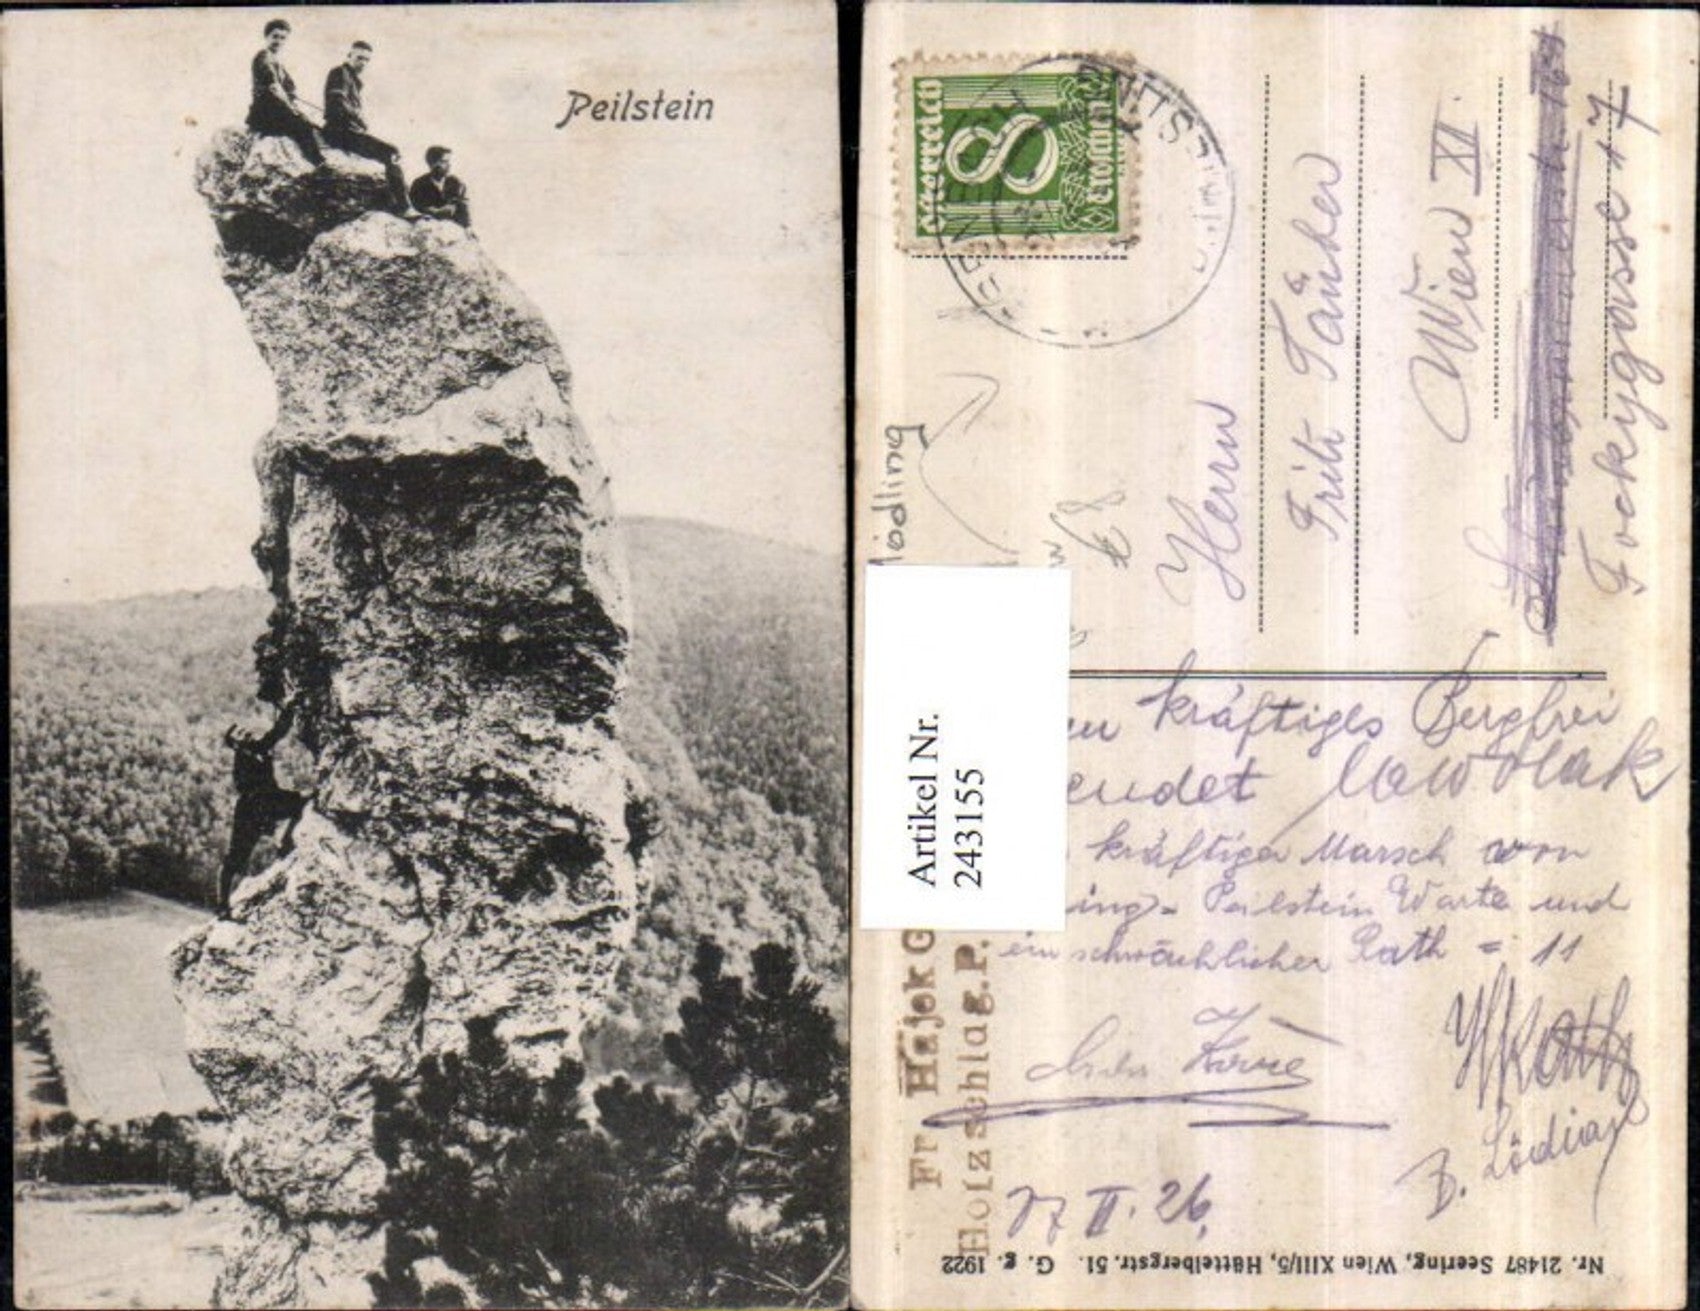 Peilstein
Österreich
8
Groschen
Mödling
Herrn
Fritz Täuber
Wien XI.
Fockygasse 17
Artikel Nr.
243155
kräftiges Bergfrei
endet
kräftiger Marsch von
ing - Peilstein Warte und
ein schwächlicher Rath = 11
Fr Hajek G
Holzschlag. P.
27 II. 26.
Nr. 21487 Seering, Wien XIII/5, Hüttelbergstr. 51. G. g. 1922